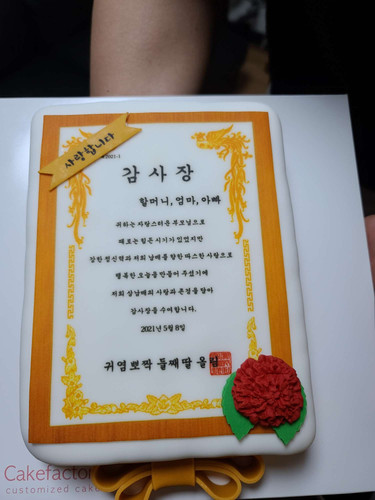 사랑합니다
감사장
할머니, 엄마, 아빠
귀하는 자랑스러운 부모님으로
때로는 힘든 시기가 있었지만
강한 정신력과 저희 남매를 향한 따스한 사랑으로
행복한 오늘을 만들어 주셨기에
저희 삼남매의 사랑과 존경을 담아
감사장을 수여합니다.
2021년 5월 8일
귀염뽀짝 둘째딸 올림
Cakefactor
customized cake